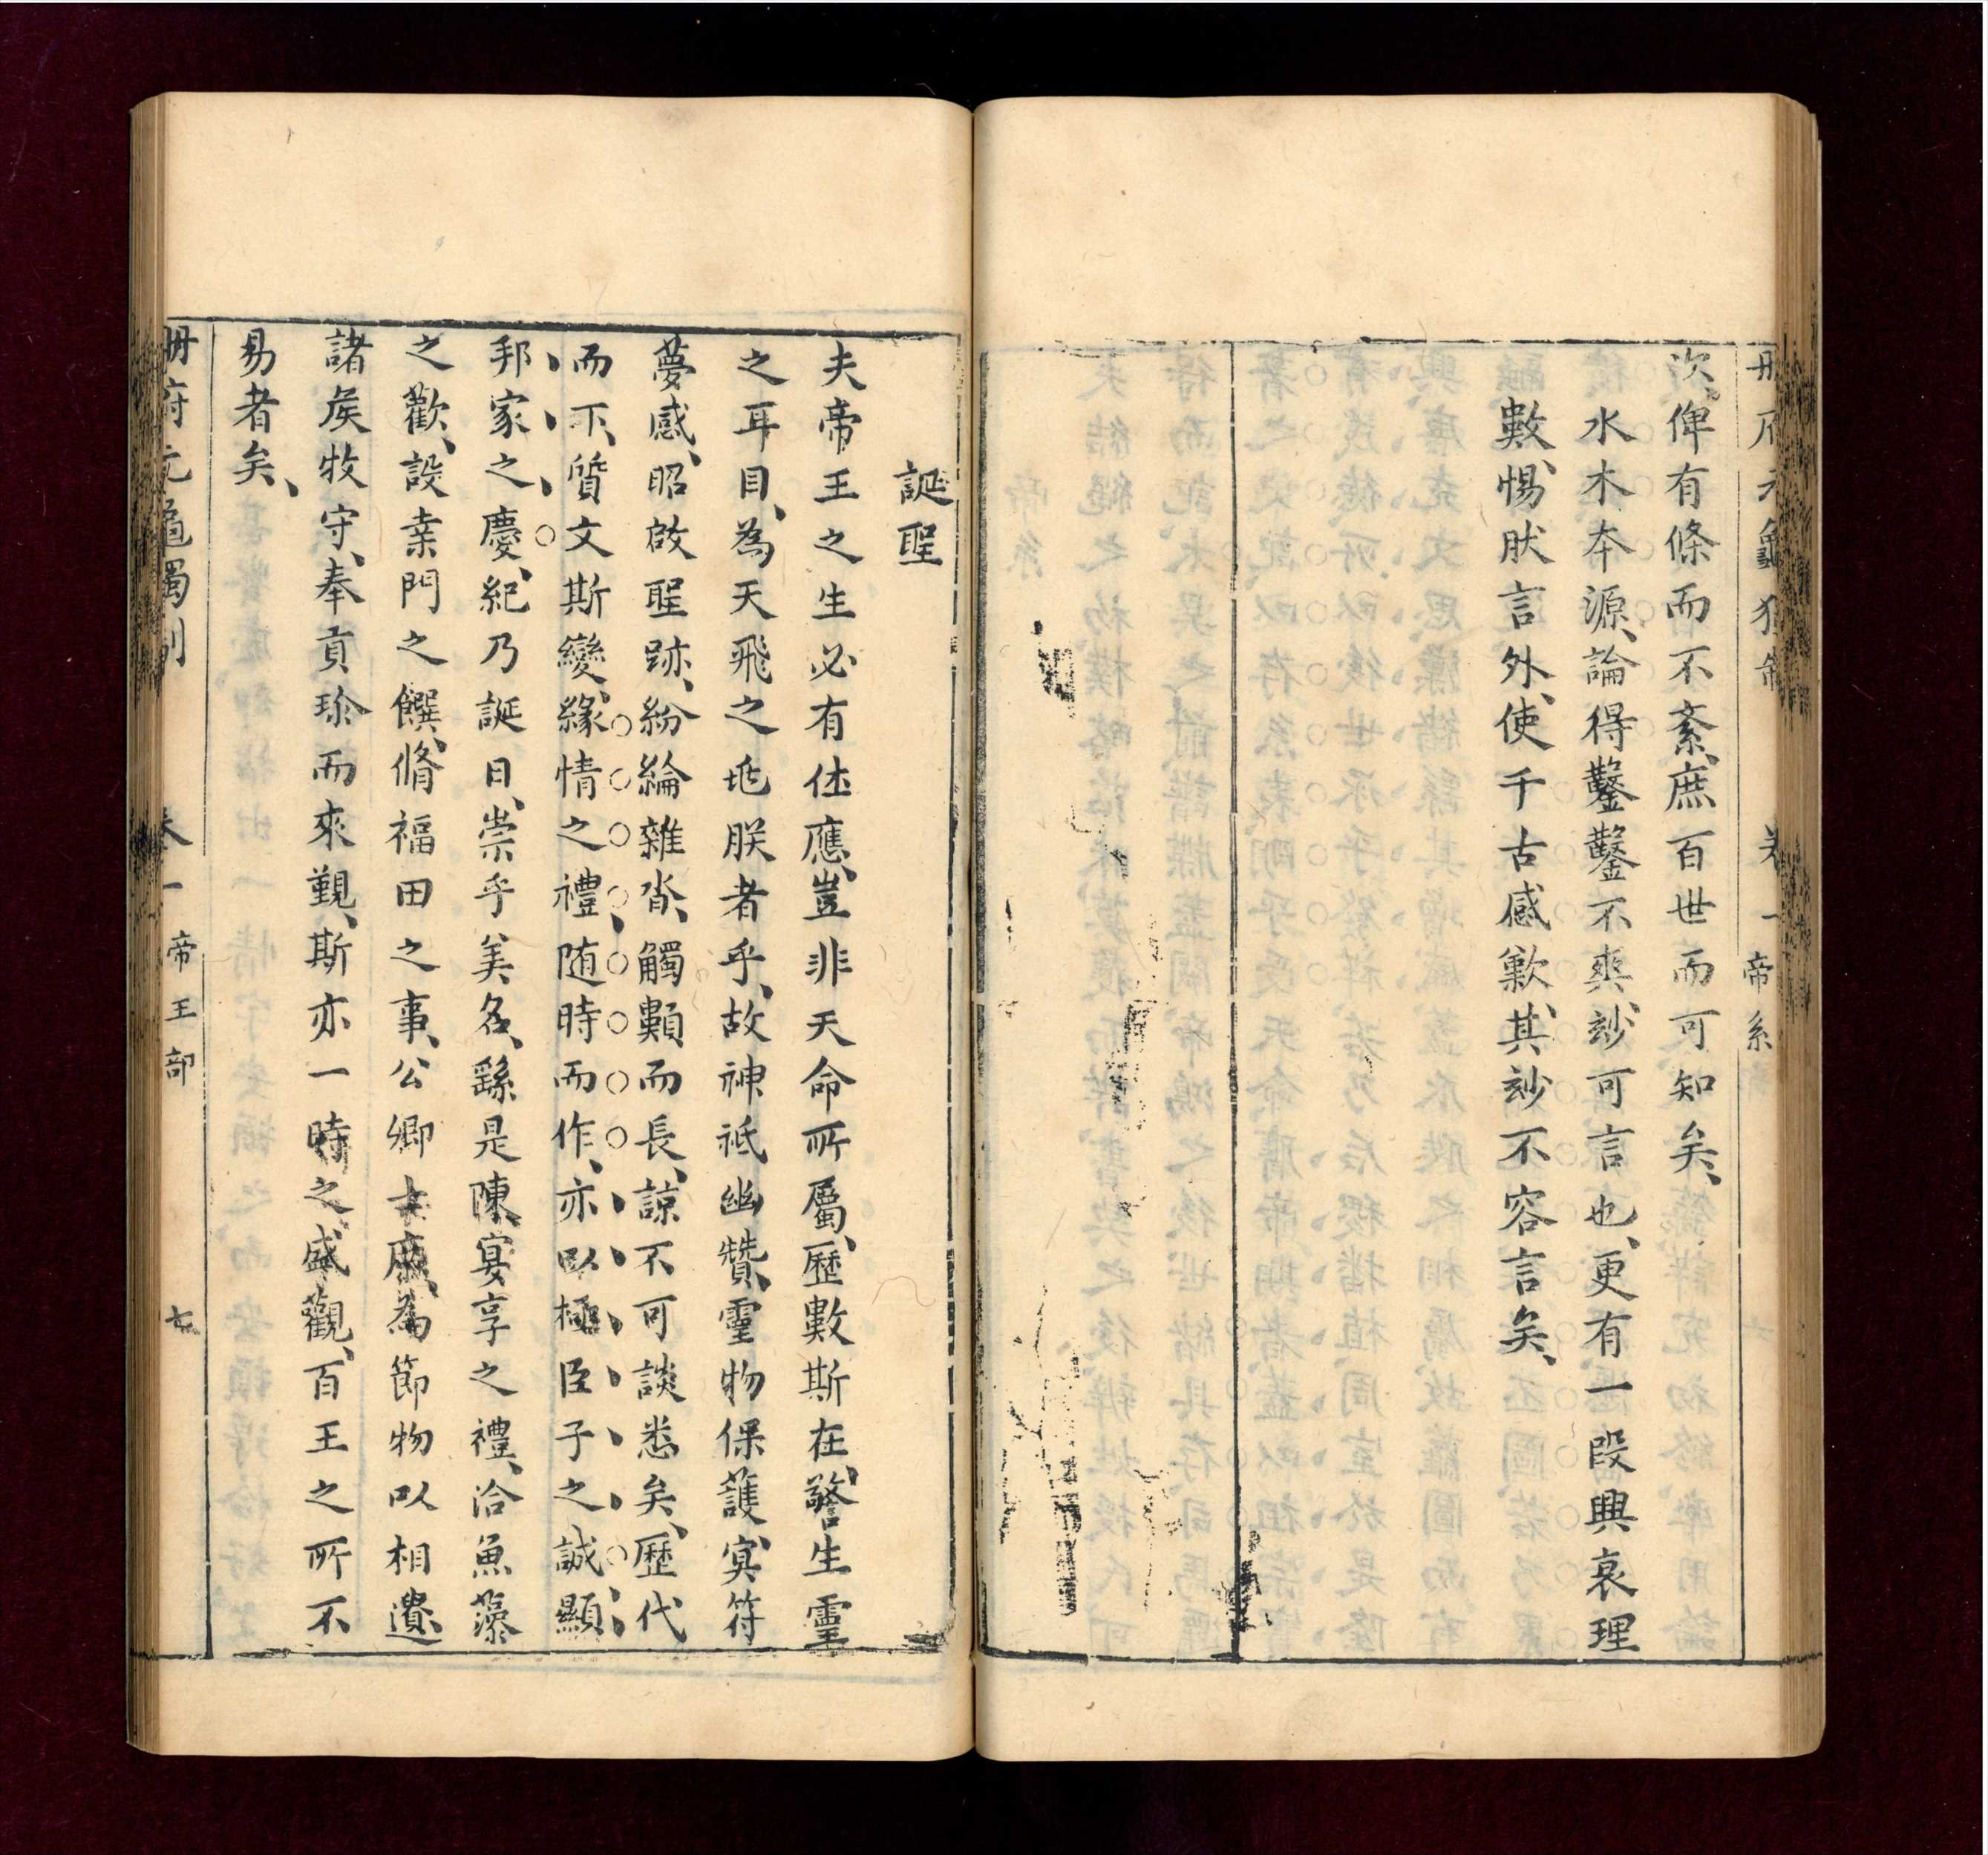 冊府元龜獨制 卷一 帝系
次、俾有條而不紊、庶百世而可知矣、
水木本源、論得鑿鑿不爽、玅可言也、更有一段興衰理
數、惕肰言外、使千古感歎、其玅不容言矣、
誕聖
夫帝王之生必有休應、豈非天命所屬、歷數斯在、警生靈
之耳目、為天飛之兆朕者乎、故神祗幽贊、靈物保護、冥符
夢感、昭啟聖跡、紛綸雜沓、觸類而長、諒不可談悉矣、歷代
而下、質文斯變、緣情之禮、随時而作、亦以極臣子之誠、顯
邦家之慶、紀乃誕日、崇乎美名、繇是陳宴享之禮、洽魚藻
之歡、設桒門之饌、脩福田之事、公卿士庶、為節物以相遺、
諸矦牧守、奉貢珍而來覲、斯亦一時之盛觀、百王之所不
易者矣、
冊府元龜獨制 卷一 帝王部 七